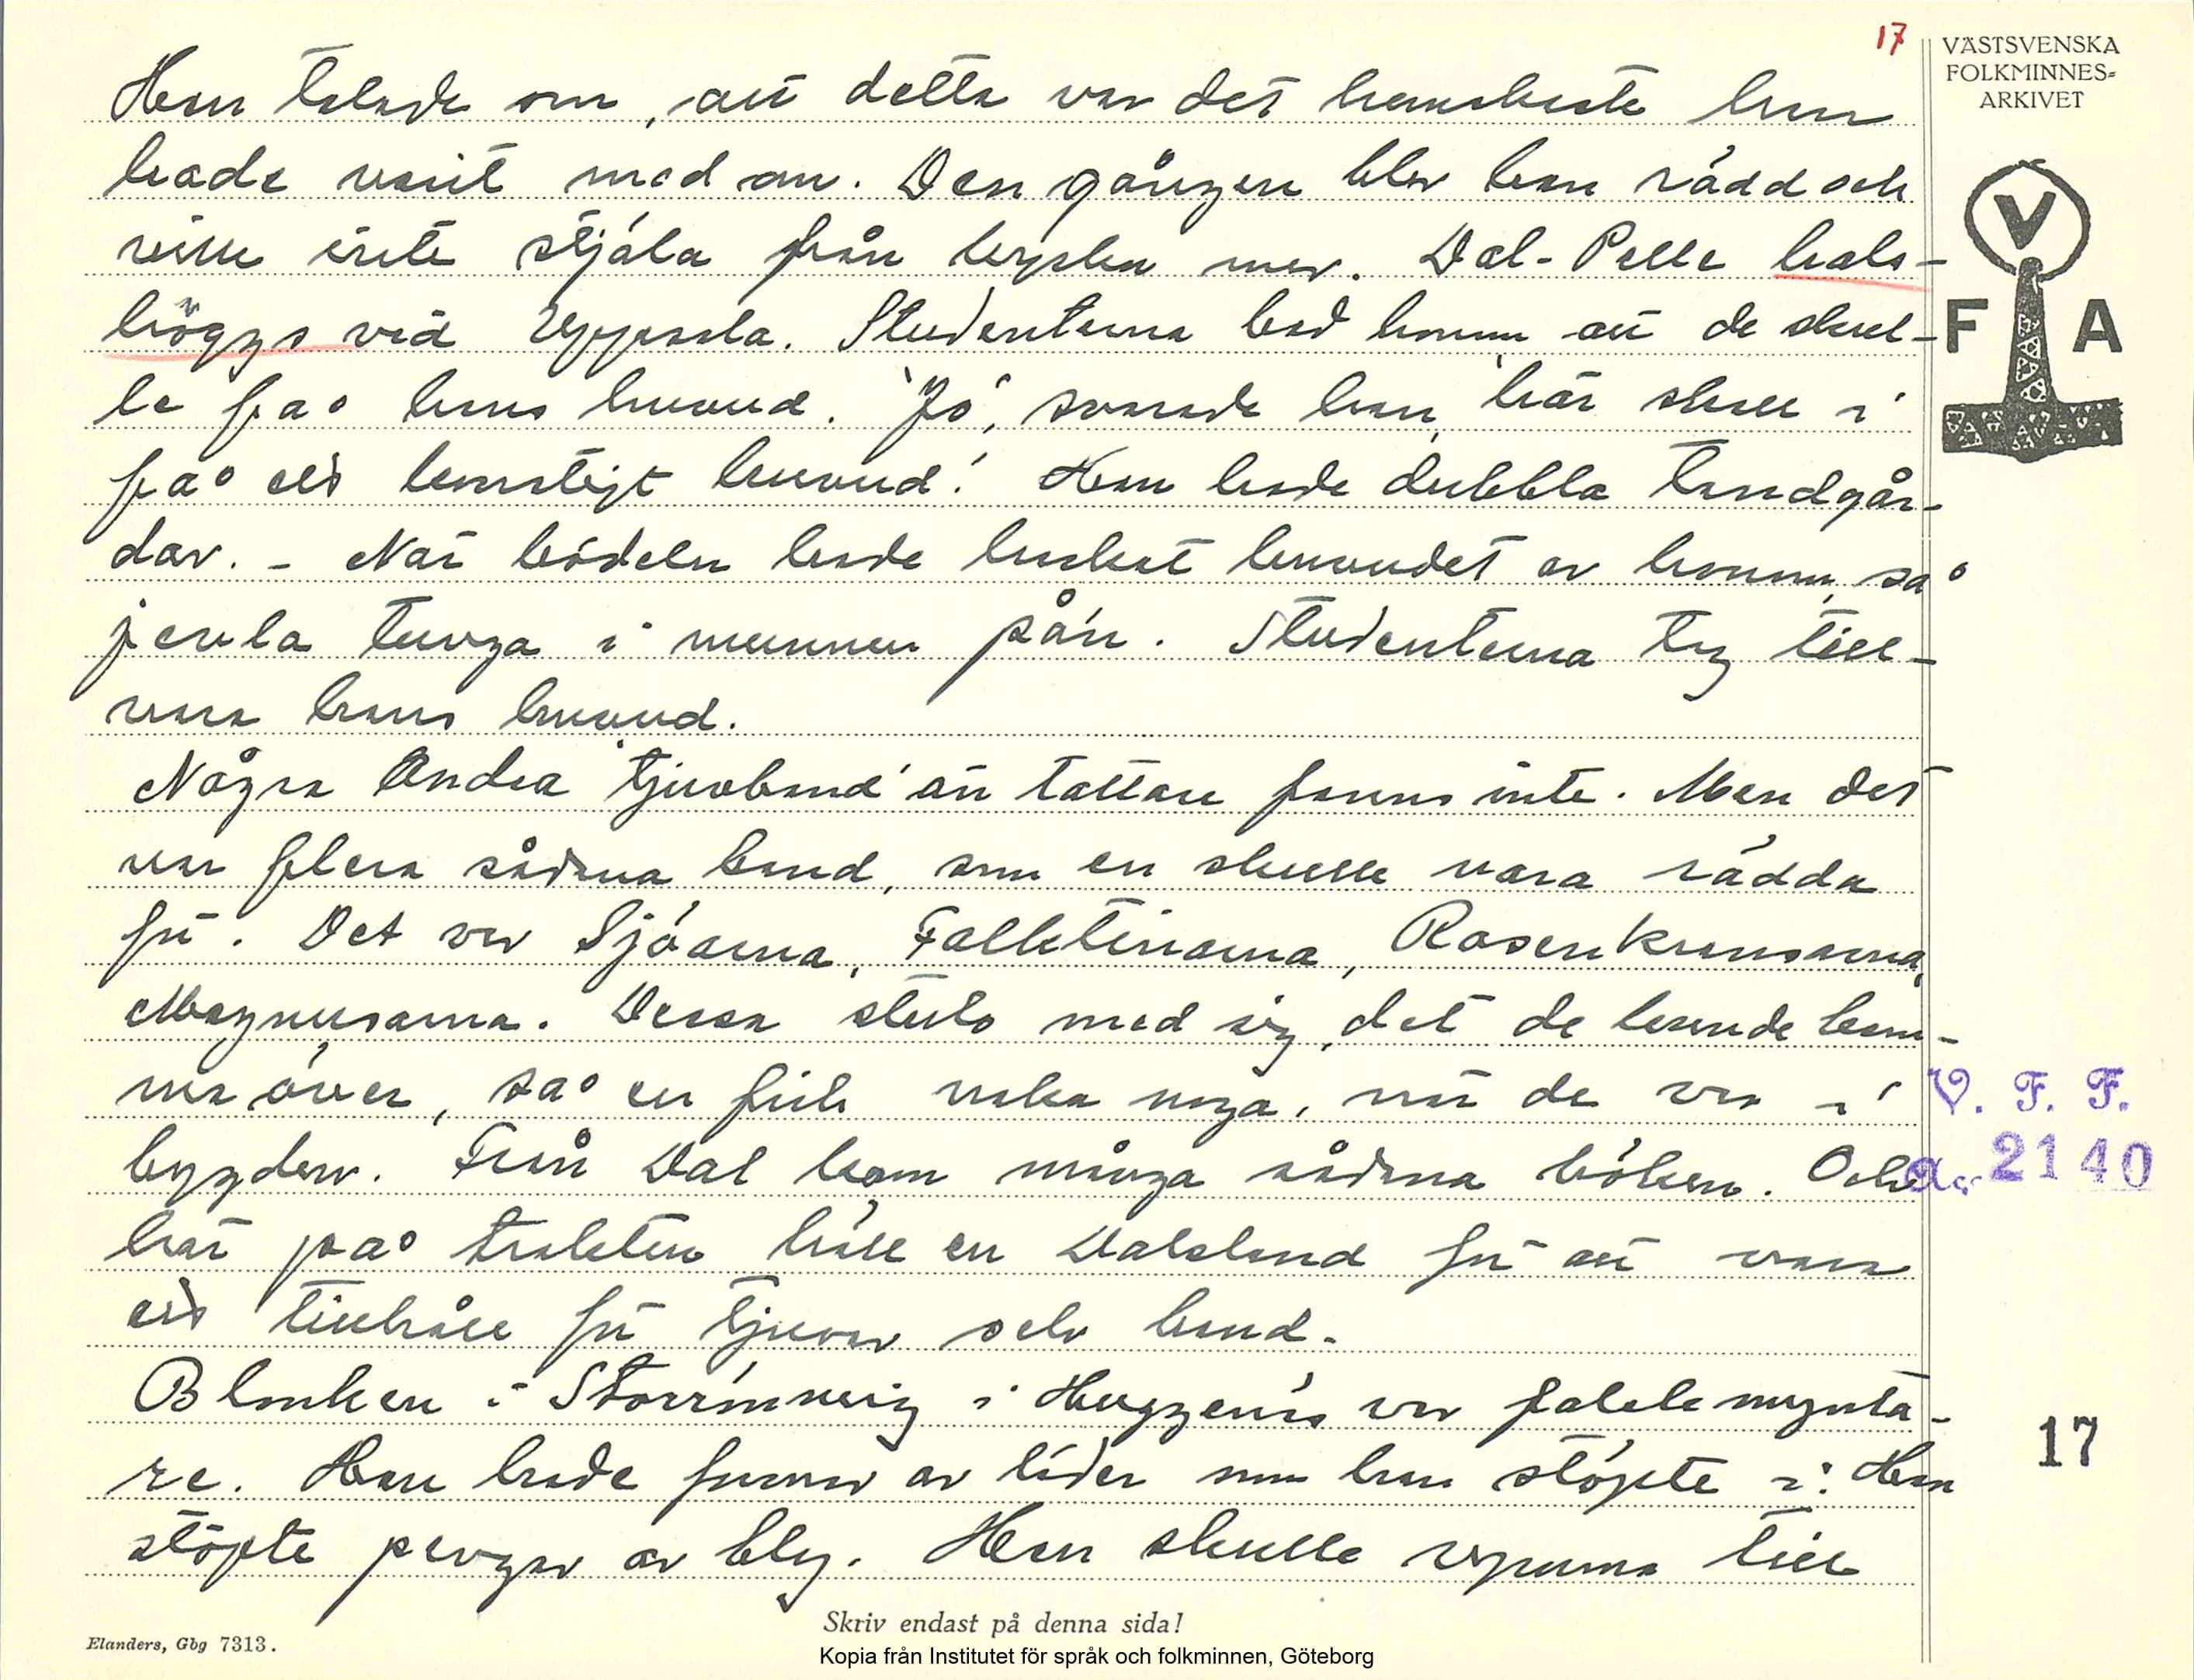 17
VÄSTSVENSKA
FOLKMINNES=
ARKIVET
V
F A
Han talade om, att detta var det hemskaste han
hade varit med om. Den gången blev han rädd och
ville inte stjäla från kyrkan mer. Dal-Pelle hals-
höggs vid Uppsala. Studenterna bad honom att de skul-
le få hans huvud. "Jo", svarade han, "här skall i
få ett konstigt huvud". Han hade dubbla tandgår-
dar. - När bödeln hade huckat huvudet av honom, så
tunga i munnen på'n. Studenterna tog till-
vara hans huvud.
Några andra "tjuvband" än tattare fanns inte. Men det
var flera sådana band, som en skulle vara rädda
för. Det var Sjöarna, Falletinarna, Rosenkransarna,
Magnusarna. Dessa stulo med sig, det de kunde kom-
ma över, så en fick vaka noga, när de var i
bygden. Från Dal kom många sådana böken. Och
här på trakten höll en Dalsland för att vara
ett tillhåll för tjuvar och band.
Blanken i Storrönning i Huggenäs var falskmynta-
re. Han hade formar av läder som han stöpte i. Han
stöpte pengar av bly. Han skulle rymma till
V. F. F.
2140
17
Skriv endast på denna sida!
Elanders, Gbg 7313.
Kopia från Institutet för språk och folkminnen, Göteborg